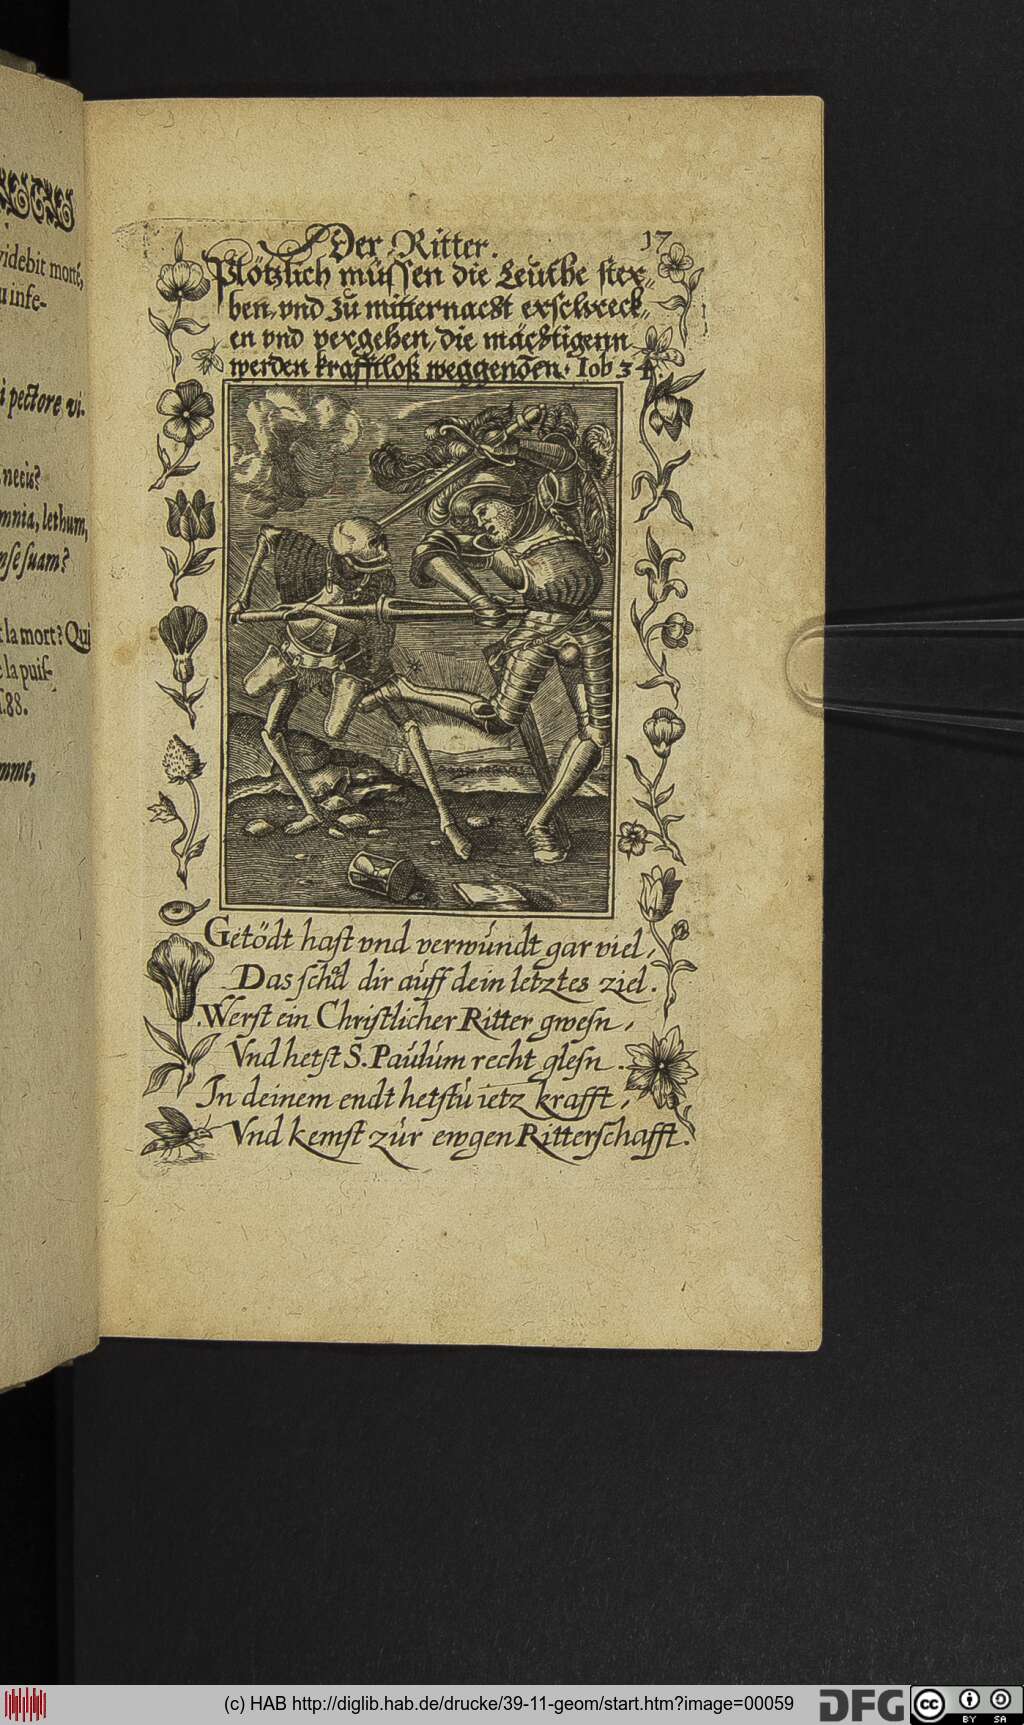 videbit mortē,
u infe-
i pectore, vi-
necis?
omnia, lethum,
nse suam?
t la mort? Qui
e la puis-
88.
mme,
Der Ritter.
17
Plötzlich müssen die Leuthe ster„
ben, vnd zu mitternacht erschreck„
en vnd vergehen, die mächtigenn
werden krafftloß weggenōen. Iob 34.
Getödt hast vnd verwundt gar viel,
Das schad dir auff dein letztes ziel.
Werst ein Christlicher Ritter gwesn,
Vnd hetst S. Paulum recht glesn.
In deinem endt hetstu ietz krafft,
Vnd kemst zur ewgen Ritterschafft.
(c) HAB http://diglib.hab.de/drucke/39-11-geom/start.htm?image=00059
DFG
cc
BY SA